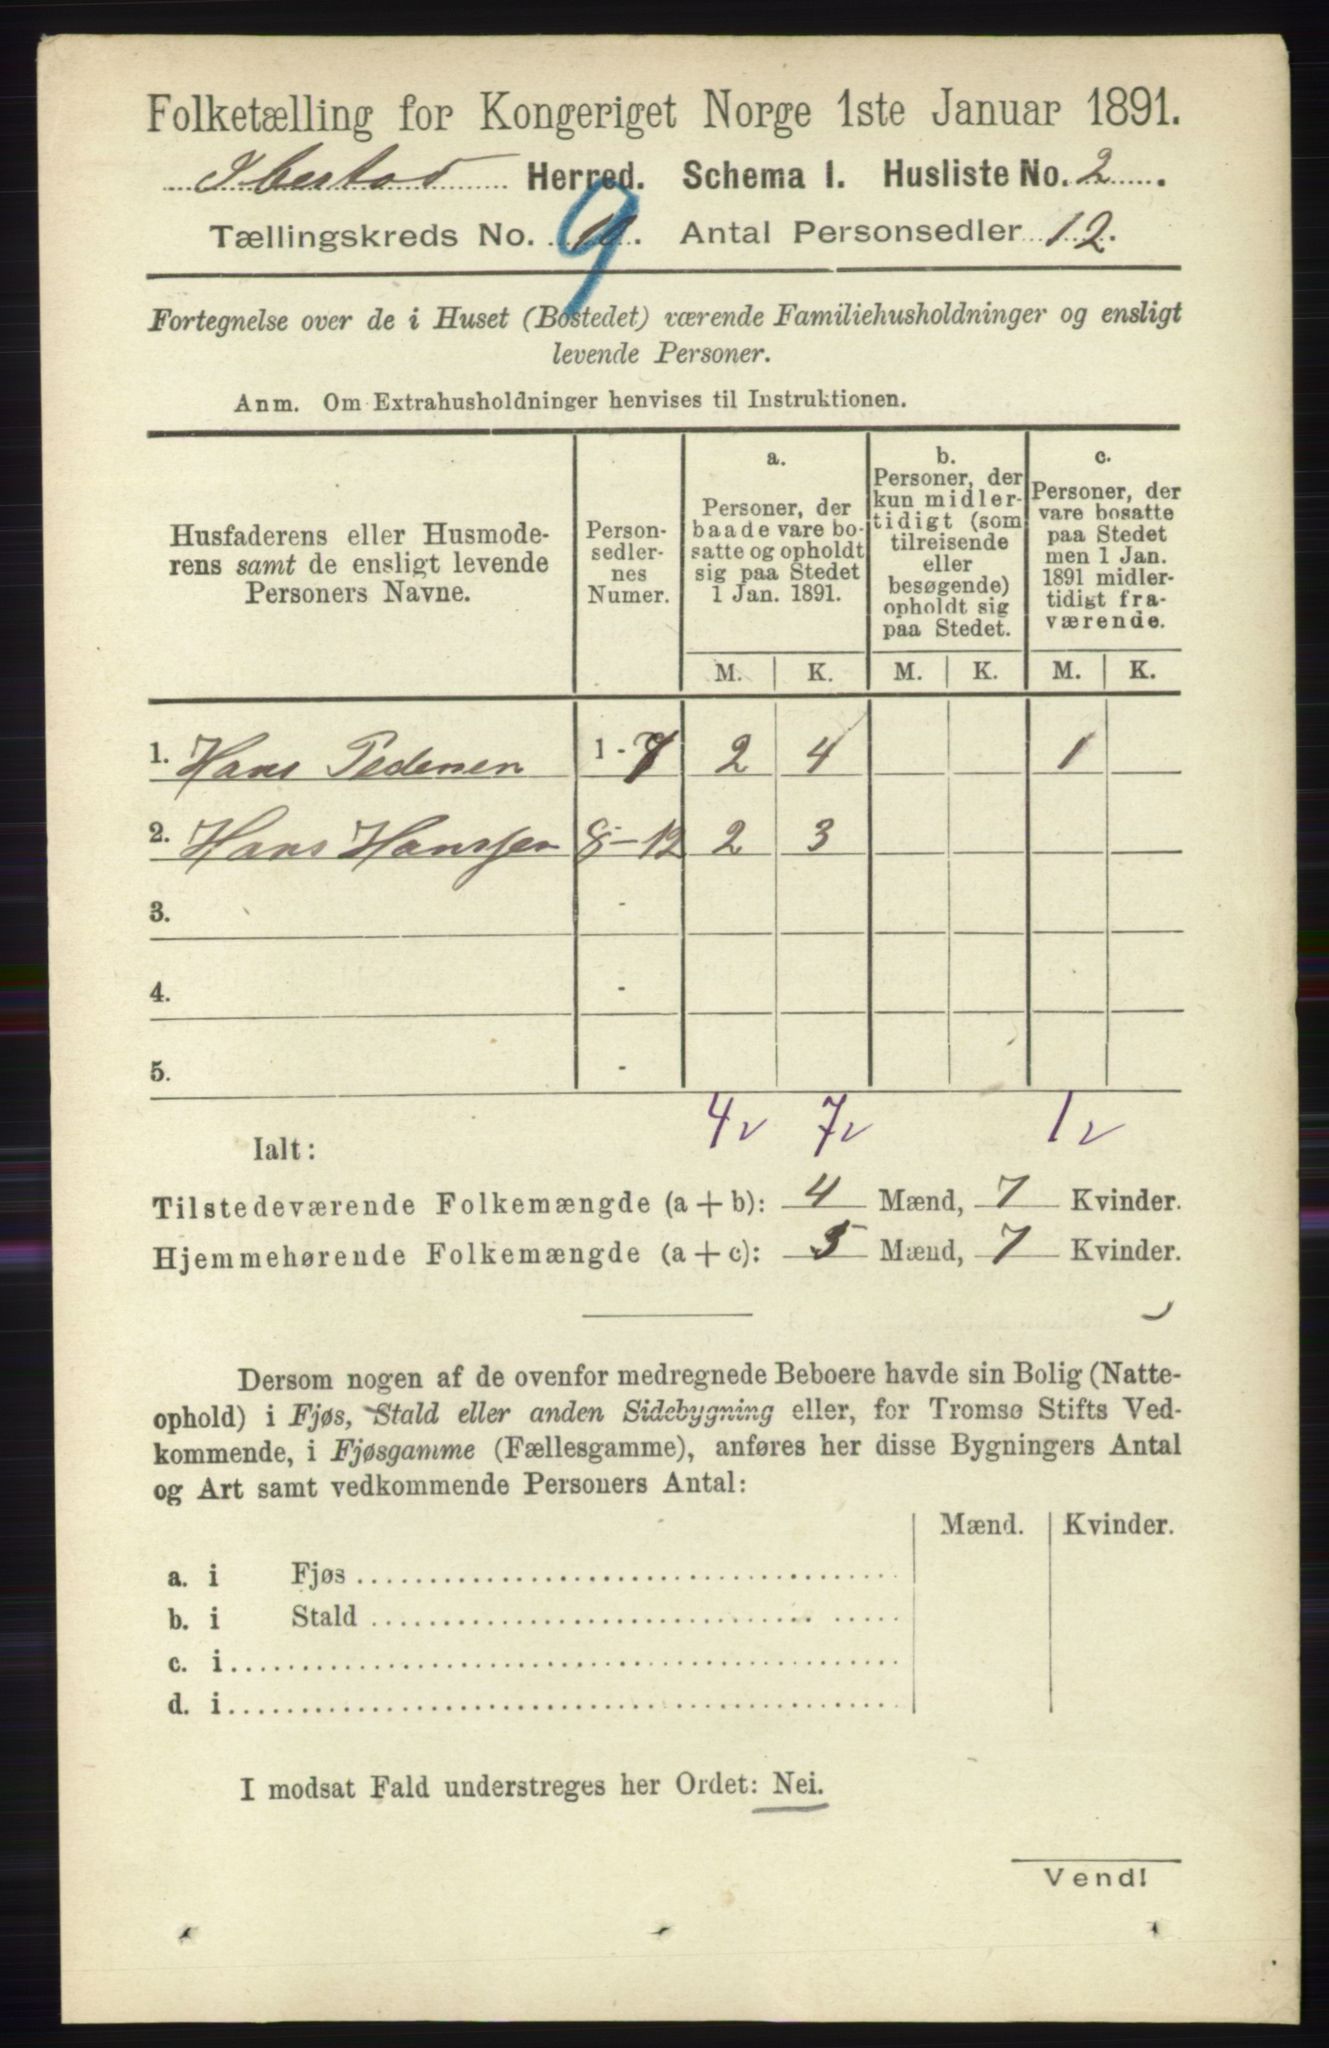 Folketælling for Kongeriget Norge 1ste Januar 1891.
Ibestad Herred. Schema I. Husliste No. 2.
Tællingskreds No. 10. 9 Antal Personsedler 12.
Fortegnelse over de i Huset (Bostedet) værende Familiehusholdninger og ensligt
levende Personer.
Anm. Om Extrahusholdninger henvises til Instruktionen.
Husfaderens eller Husmode-
rens samt de ensligt levende
Personers Navne.
Person-
sedler-
nes
Numer.
a.
Personer, der
baade vare bo-
satte og opholdt
sig paa Stedet
1 Jan. 1891.
b.
Personer, der
kun midler-
tidigt (som
tilreisende
eller
besøgende)
opholdt sig
paa Stedet.
c.
Personer, der
vare bosatte
paa Stedet
men 1 Jan.
1891 midler-
tidigt fra-
værende.
M. K. M. K. M. K.
1. Hans Pedersen 1 - 7 2 4 1
2. Hans Hanssen 8 - 12 2 3
3. -
4. -
5. -
4 v 7 v 1 v
Ialt:
Tilstedeværende Folkemængde (a + b): 4 Mænd, 7 Kvinder.
Hjemmehørende Folkemængde (a + c): 5 Mænd, 7 Kvinder.
Dersom nogen af de ovenfor medregnede Beboere havde sin Bolig (Natte-
ophold) i Fjøs, Stald eller anden Sidebygning eller, for Tromsø Stifts Ved-
kommende, i Fjøsgamme (Fællesgamme), anføres her disse Bygningers Antal
og Art samt vedkommende Personers Antal:
Mænd. Kvinder.
a. i Fjøs
b. i Stald
c. i
d. i
I modsat Fald understreges her Ordet: Nei.
Vend!